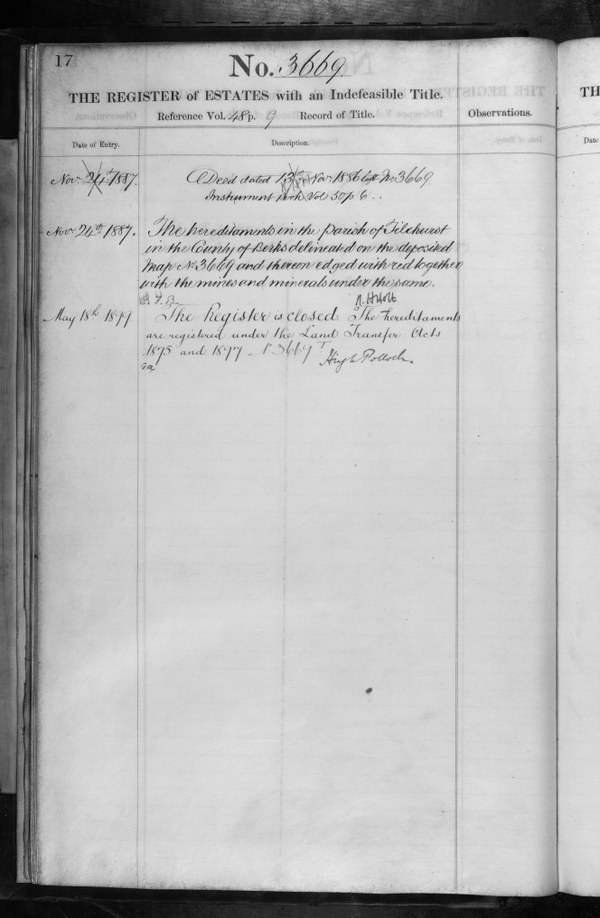 17
No. 3669
THE REGISTER of ESTATES with an Indefeasible Title.
Reference Vol. 48 p. 9 Record of Title.
Observations.
Date of Entry.
Description.
Nov. 24th 1887.
Deed dated 13th Nov. 1886 No. 3669
Instrument Book Vol 50 p 6.
Nov 24th 1887.
The hereditaments in the parish of Tilehurst
in the County of Berks delineated on the deposited
Map No. 3669 and thereon edged with red together
with the mines and minerals under the same.
R. H. Holt
May 18th 1899
The Register is closed. The hereditaments
are registered under the Land Transfer Acts
1875 and 1897 – P. 3669 T
Hugh Pollock
TH
Date